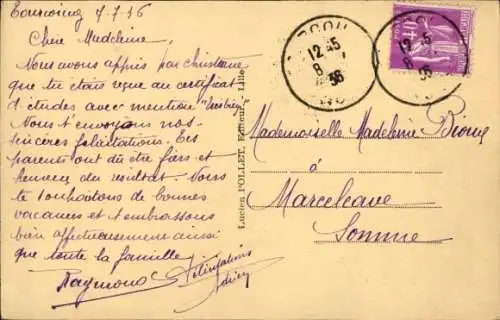 Tourcoing 7.7.36
Chère Madeleine,
Nous avons appris par Christiane
que tu étais reçue au certificat
d'études avec mention "très bien"
Nous t'envoyons nos
sincères félicitations. Tes
parents ont dû être fiers et
heureux du résultat. Nous
te souhaitons de bonnes
vacances et t'embrassons
bien affectueusement ainsi
que toute la famille
Raymond
Félicitations
Lucien POLLET, Editeur, Lille
12 45
8
36
12 45
8
36
Mademoiselle Madeleine
à
Marcelcave
Somme